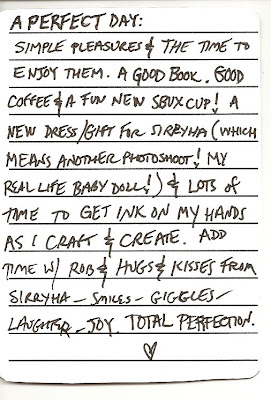 A PERFECT DAY:
SIMPLE PLEASURES & THE TIME TO
ENJOY THEM. A GOOD BOOK. GOOD
COFFEE & A FUN NEW SBUX CUP! A
NEW DRESS/GIFT FOR SIRRYHA (WHICH
MEANS ANOTHER PHOTOSHOOT! MY
REAL LIFE BABY DOLL!) & LOTS of
TIME TO GET INK ON MY HANDS
AS I CRAFT & CREATE. ADD
TIME W/ ROB & HUGS & KISSES FROM
SIRRYHA - SMILES - GIGGLES -
LAUGHTER - JOY. TOTAL PERFECTION.
♡